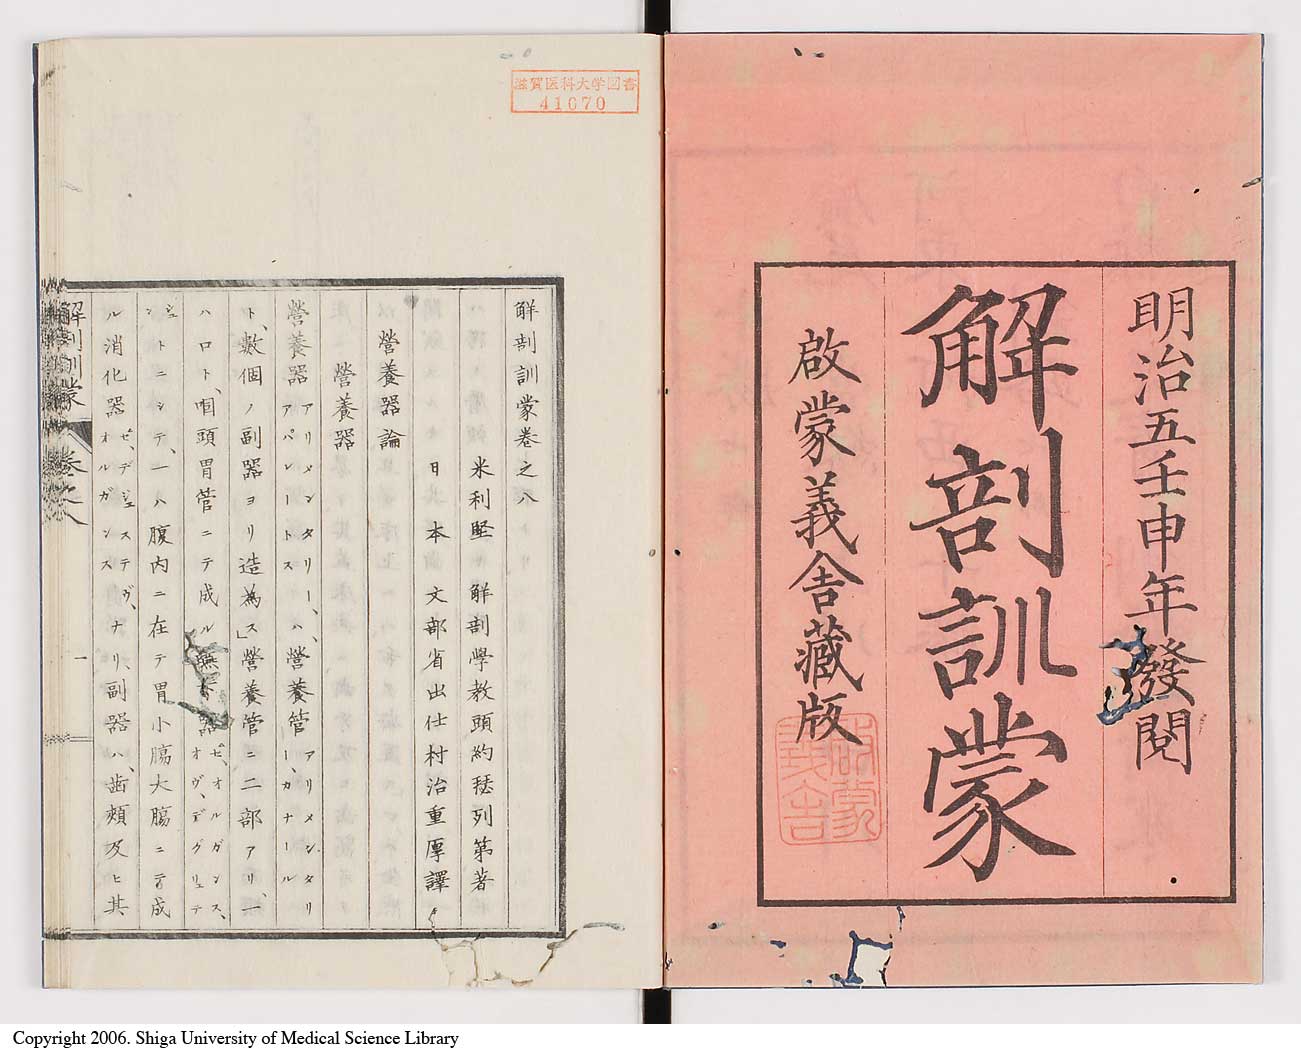 明治五壬申年發閱
解剖訓蒙
啟蒙義舍藏版
啟蒙義舍
滋賀医科大学図書
41070
解剖訓蒙卷之八
米利堅 解剖學教頭約瑟列第著
日本 文部省出仕村治重厚譯
營養器論
營養器
營養器 アリメンタリー、アパレートス ハ、營養管 アリメンタリー、カナール
ト、數個ノ副器ヨリ造為ス」營養管ニ二部アリ、一
ハ口ト、咽頭胃管ニテ成ル 器 ゼ、オルガンス、オヴ、デグリュテ
ジョン トニシテ、一ハ腹内ニ在テ胃小腸大腸ニテ成
ル消化器 ゼ、デジェステヴ、オルガンス ナリ副器ハ、齒頰及ヒ其
解剖訓蒙 卷之八
一
Copyright 2006. Shiga University of Medical Science Library